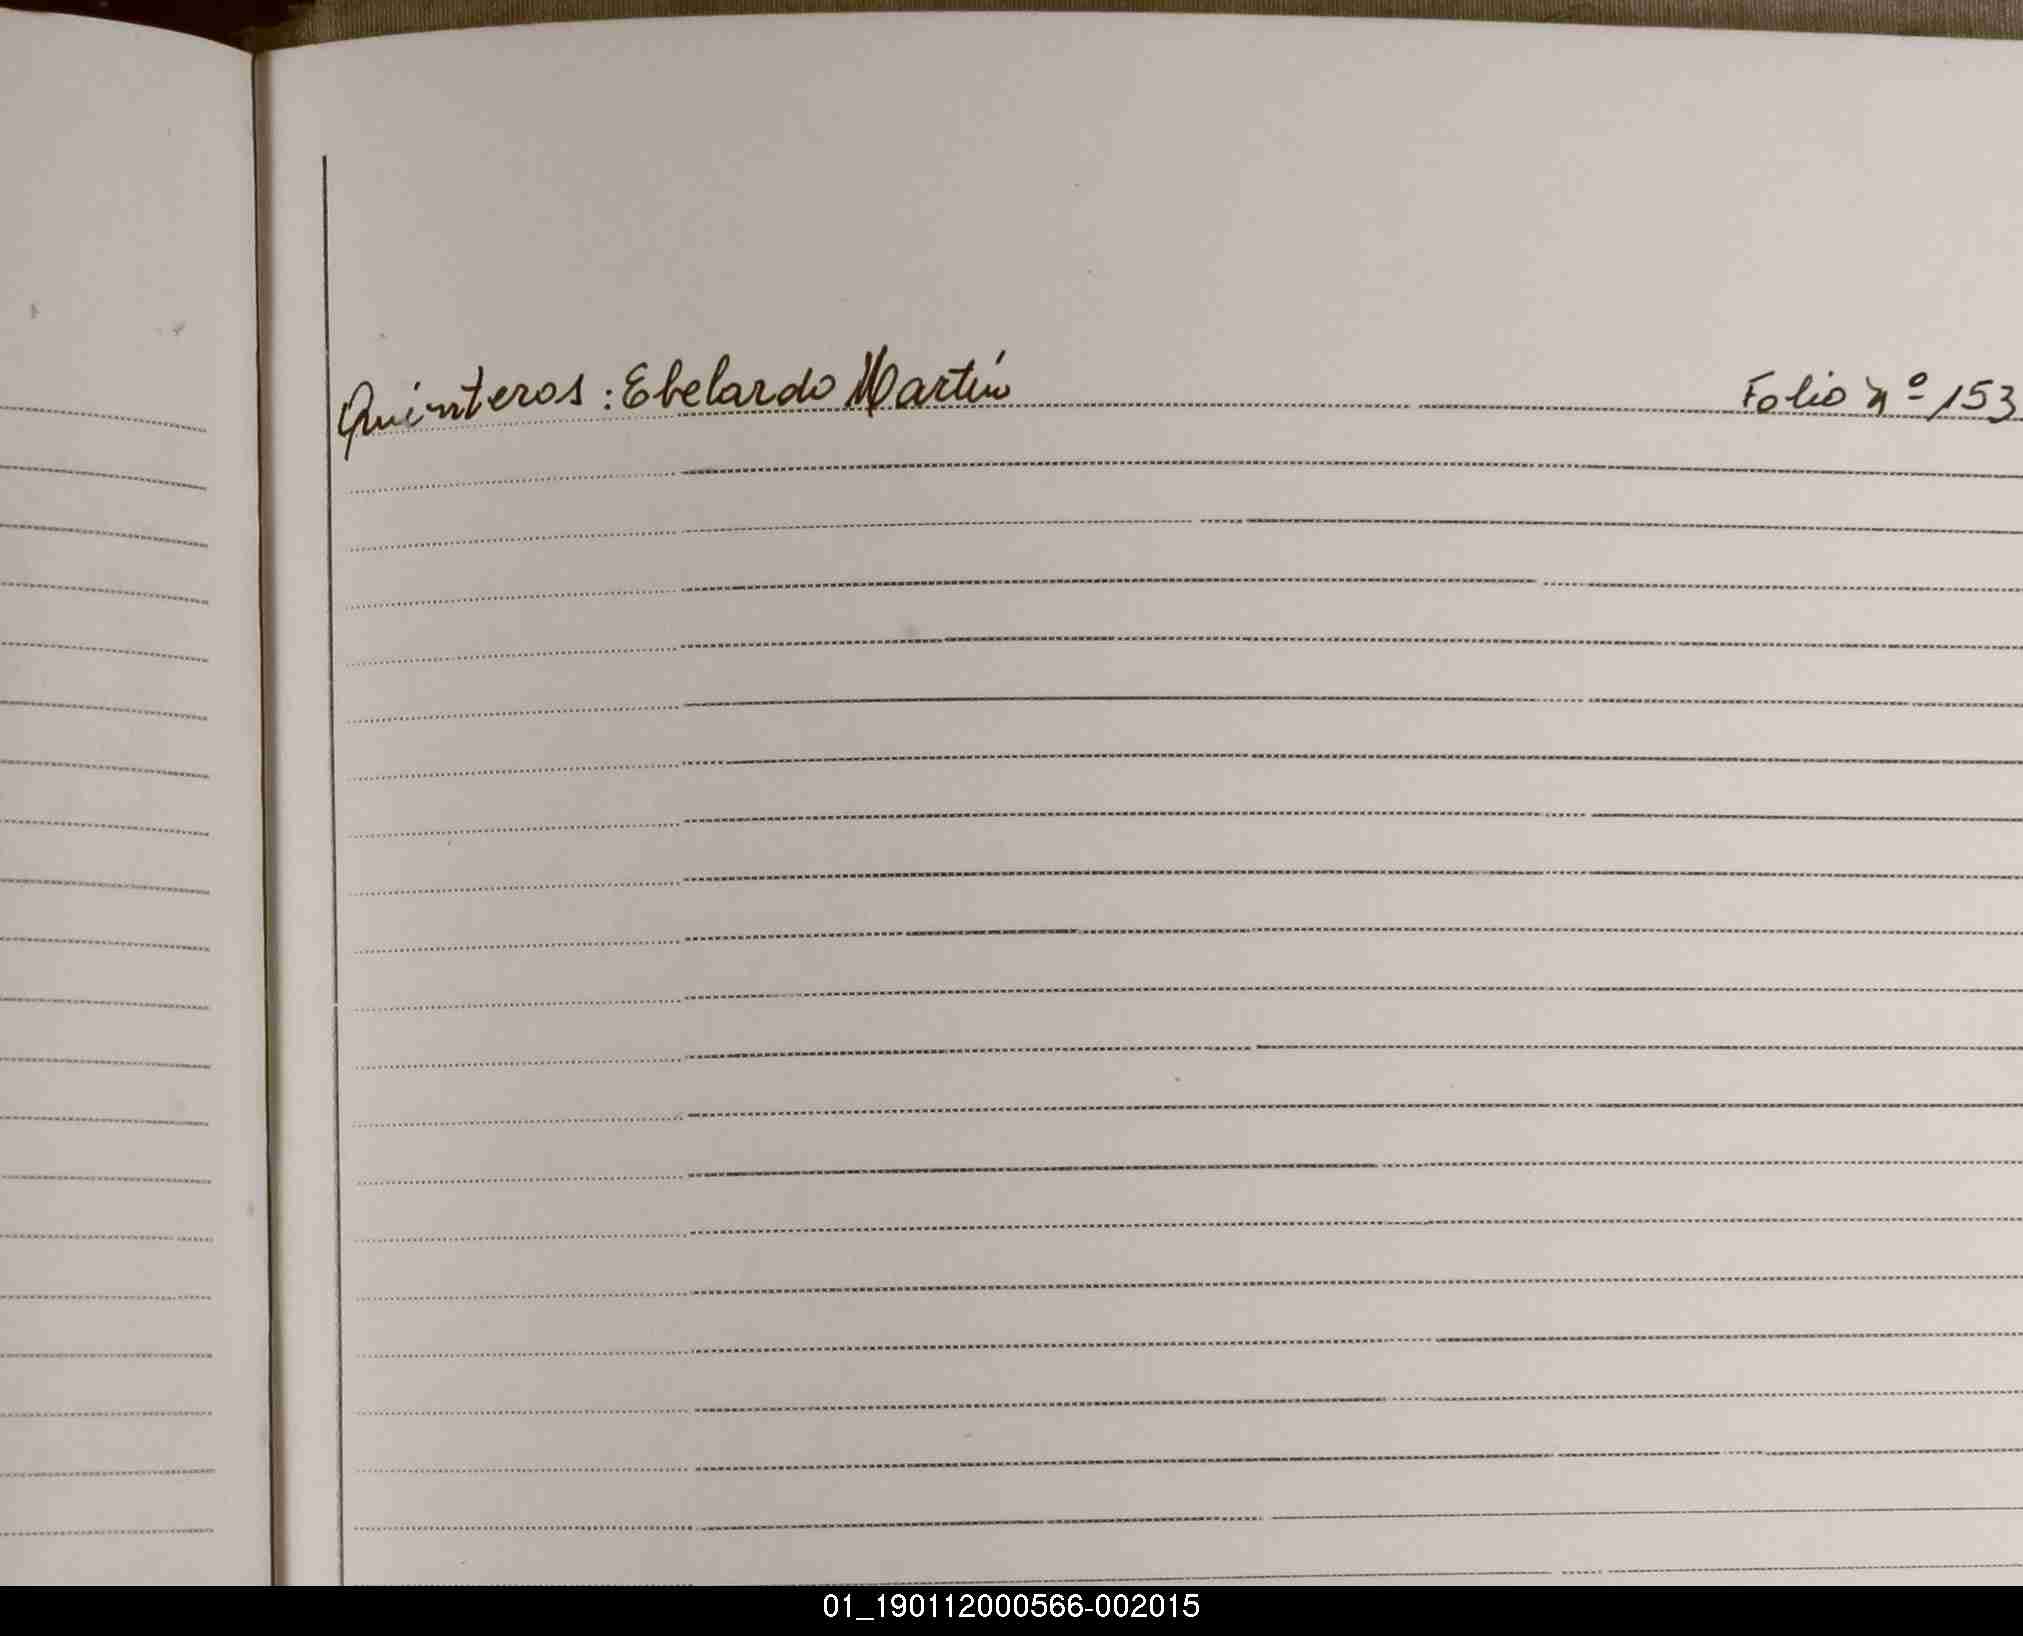 Quinteros: Ebelardo Martín Folio nº 153
01_190112000566-002015